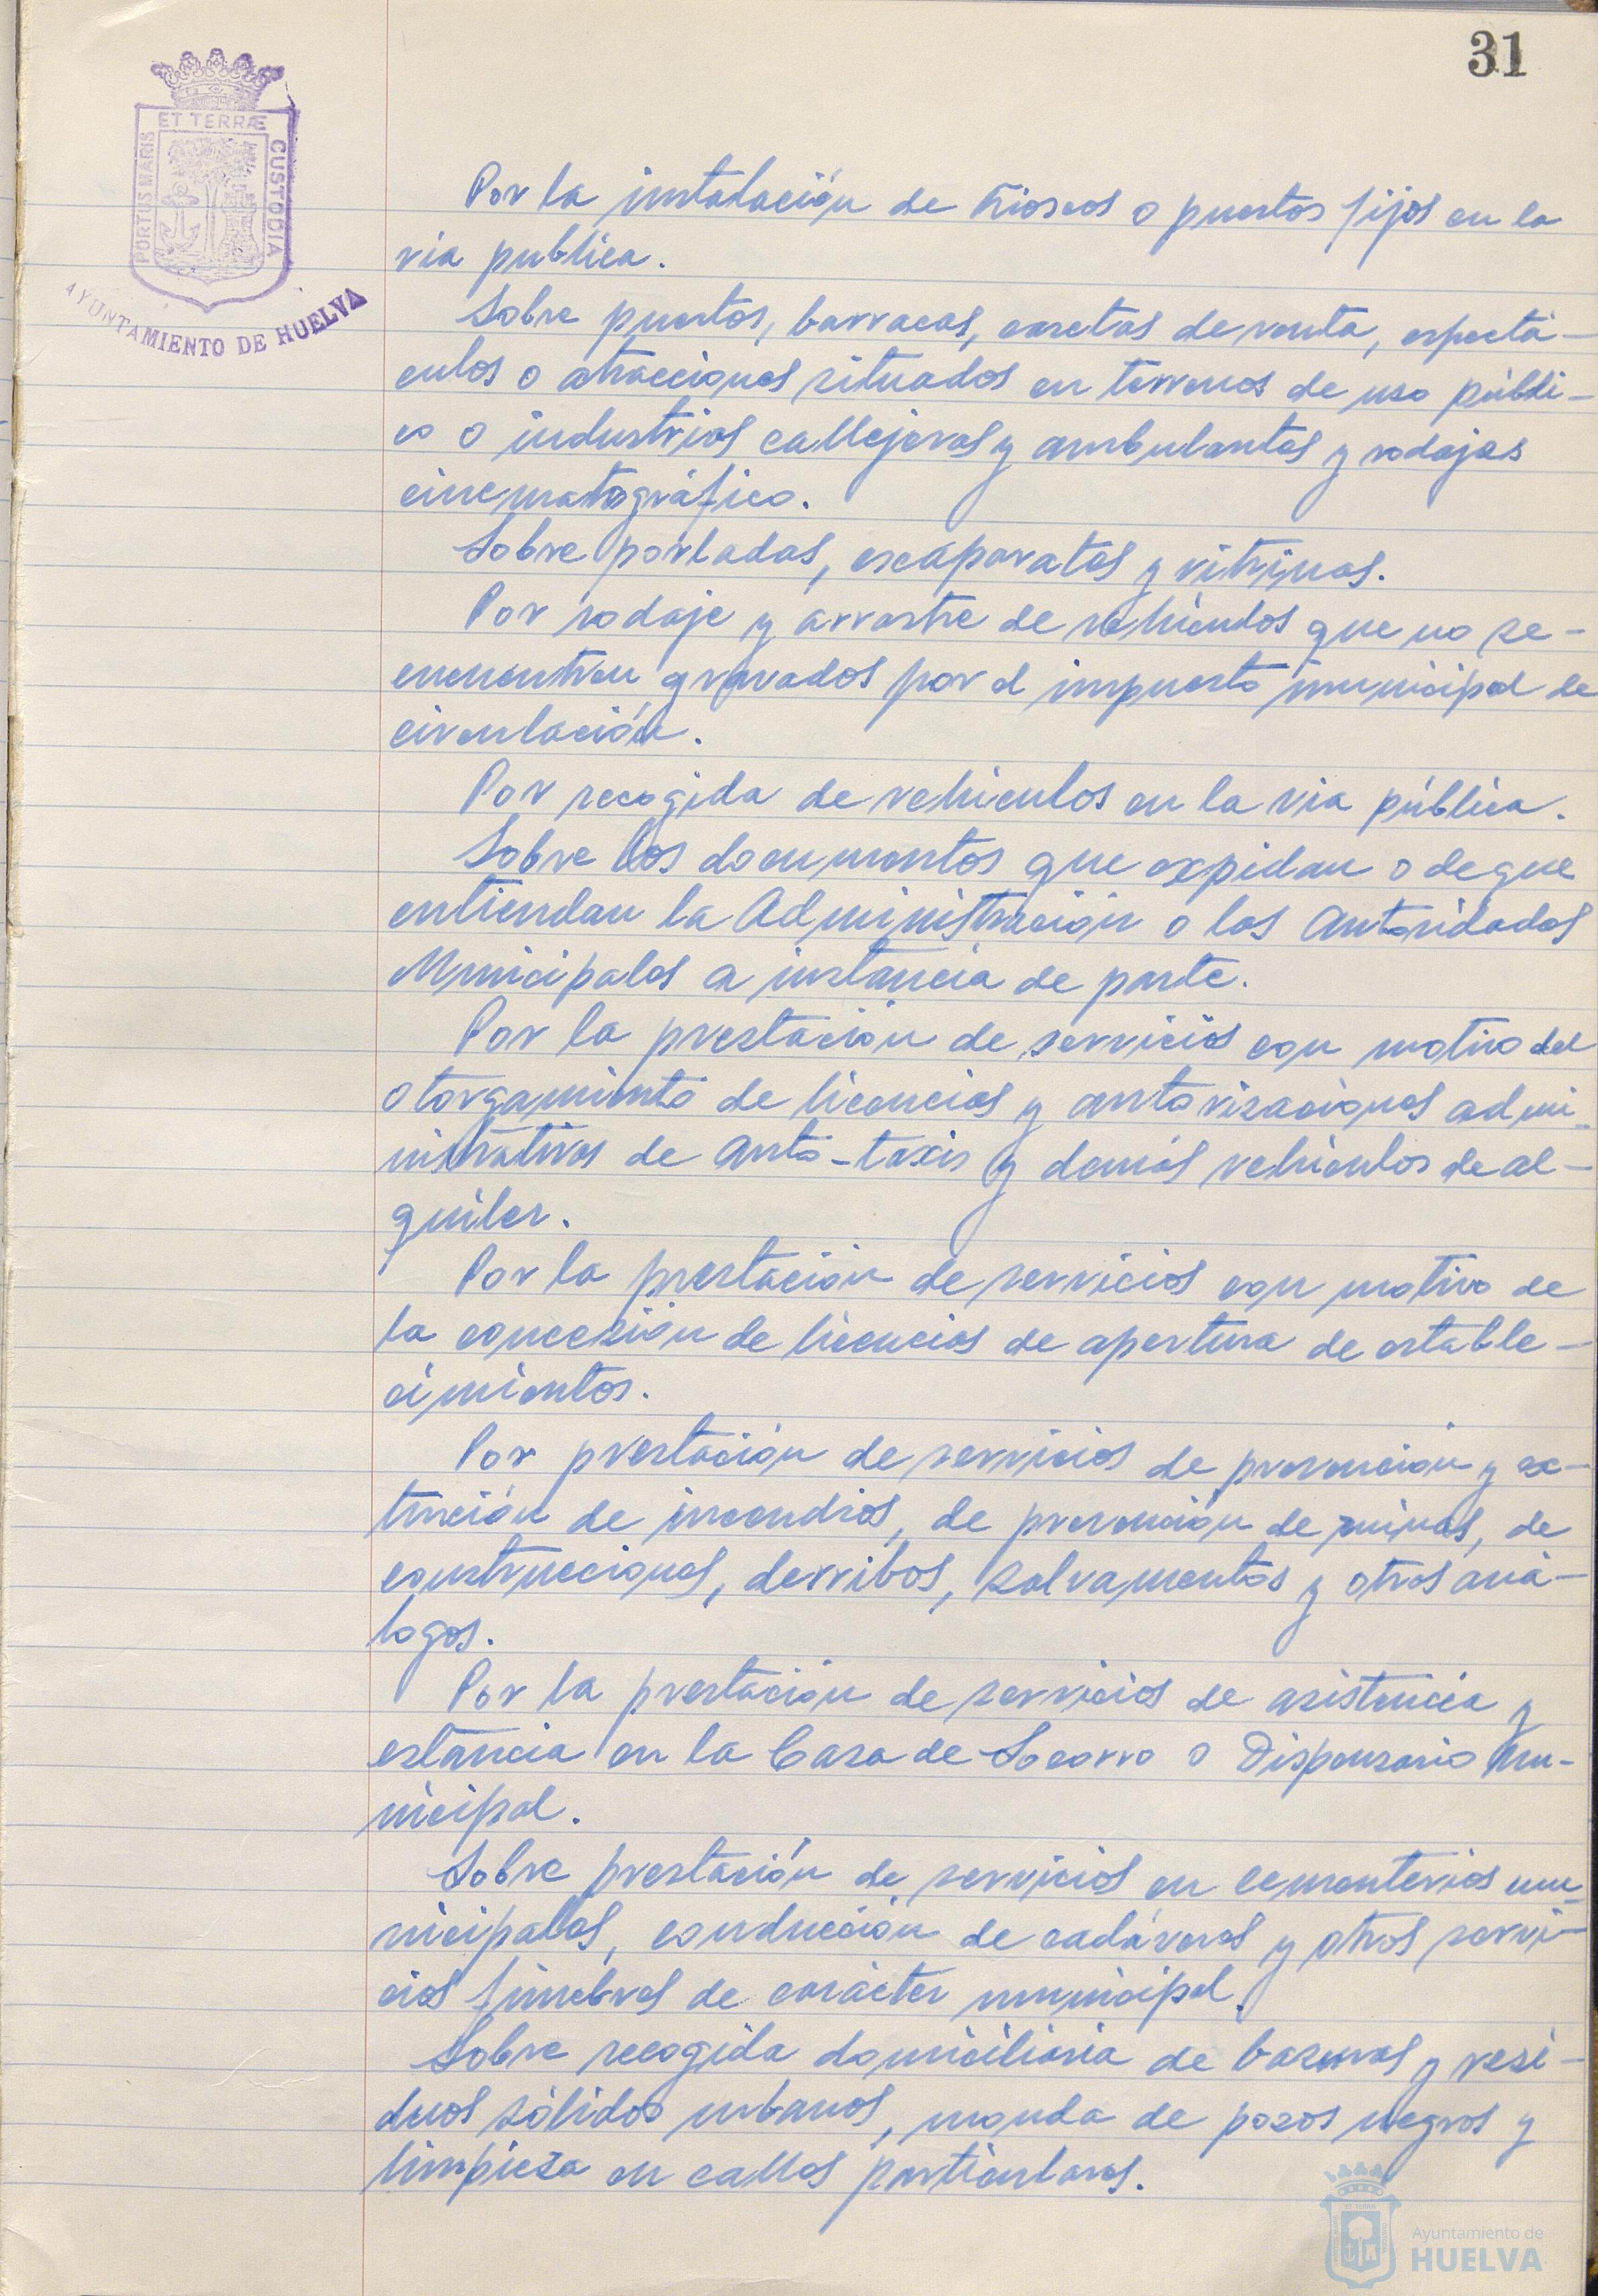 31
ET TERRÆ
PORTUS MARIS
CUSTODIA
AYUNTAMIENTO DE HUELVA
Por la instalación de Kioscos o puestos fijos en la
via publica.
Sobre puestos, barracas, casetas de venta, espectá-
culos o atracciones situados en terrenos de uso públi-
co o industrias callejeras y ambulantes y rodajes
cinematográfico.
Sobre portadas, escaparates y vitrinas.
Por rodaje y arrastre de vehiculos que no se-
encuentren gravados por el impuesto municipal de
circulación.
Por recogida de vehiculos en la via pública.
Sobre los documentos que expidan o de que
entiendan la Administración o las Autoridades
Municipales a instancia de parte.
Por la prestación de servicios con motivo del
otorgamiento de licencias y autorizaciones admi-
nistrativas de Auto-taxis y demás vehiculos de al-
quiler.
Por la prestación de servicios con motivo de
la concesión de licencias de apertura de estable-
cimientos.
Por prestación de servicios de prevención y ex-
tinción de incendios, de prevención de ruinas, de
construcciones, derribos, salvamentos y otros aná-
logos.
Por la prestación de servicios de asistencia y
estancia en la Casa de Socorro o Dispensario Mu-
nicipal.
Sobre prestación de servicios en cementerios mu-
nicipales, conducción de cadáveres y otros servi-
cios fúnebres de carácter municipal.
Sobre recogida domiciliaria de basuras y resi-
duos sólidos urbanos, monda de pozos negros y
limpieza en calles particulares.
Ayuntamiento de
HUELVA